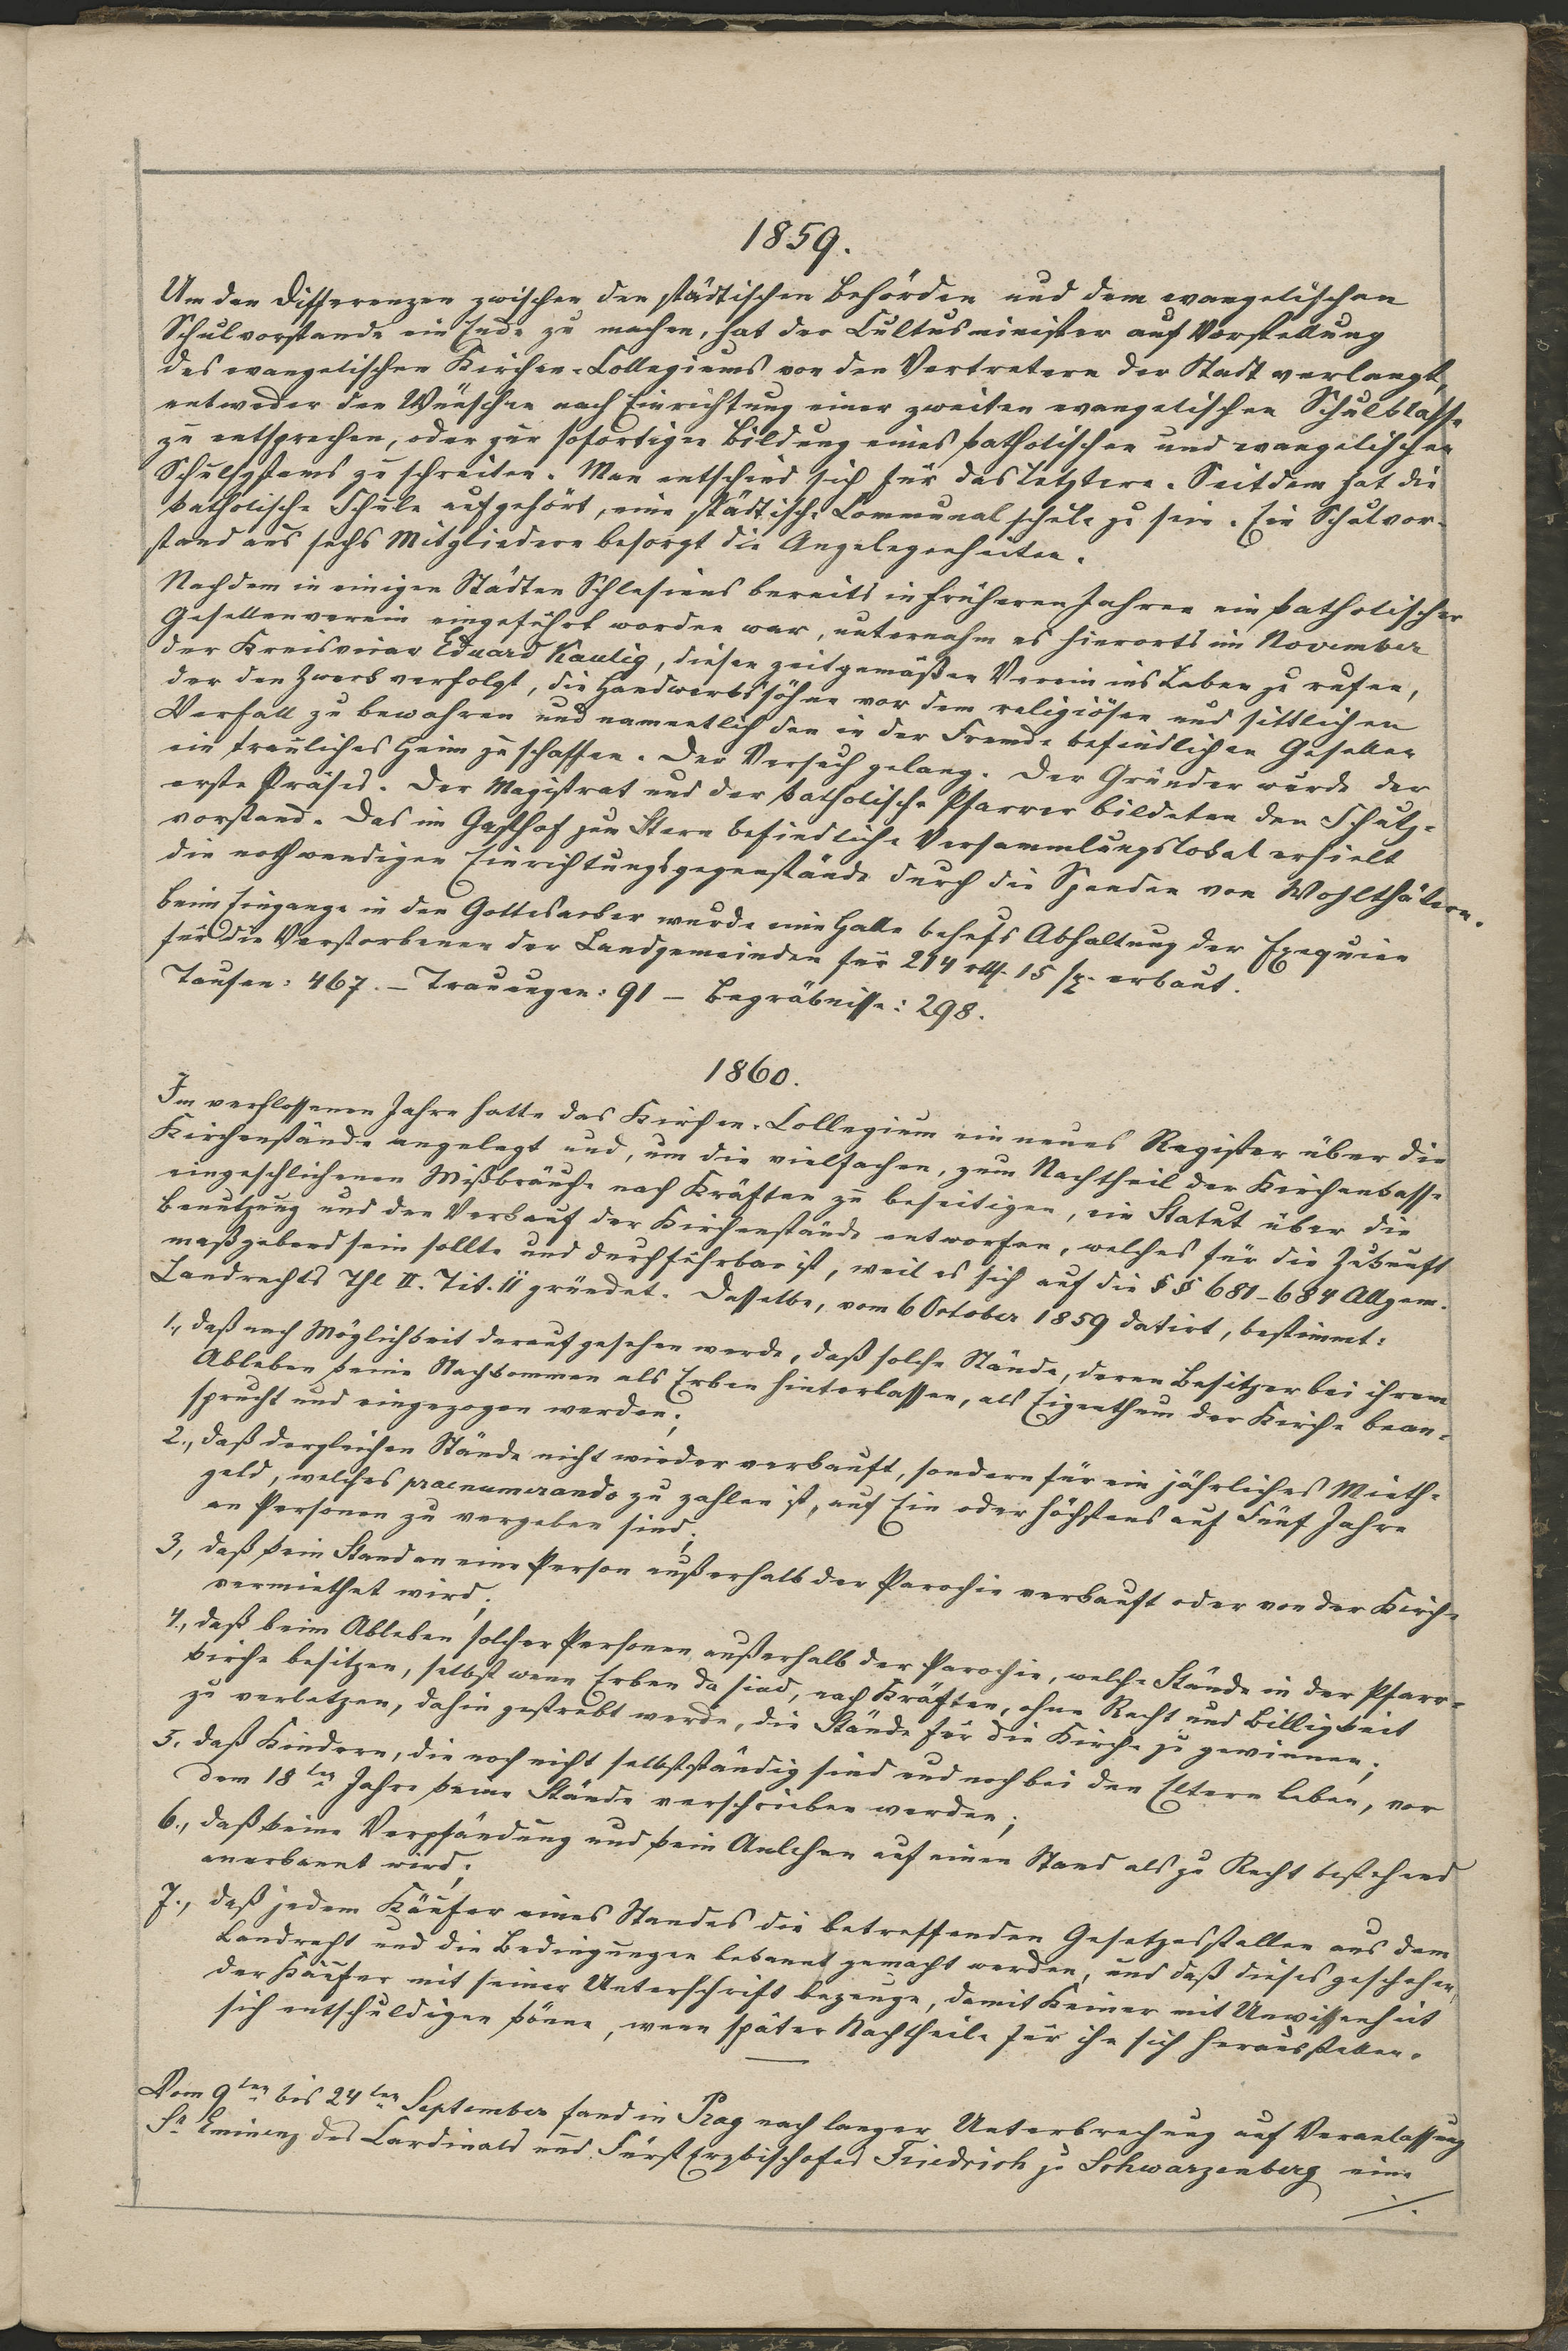 1859.
Um den Differenzen zwischen den städtischen Behörden und dem evangelischen
Schulvorstande ein Ende zu machen, hat der Cultusminister auf Vorstellung
des evangelischen Kirchen-Collegiums von den Vertretern der Stadt verlangt,
entweder den Wünschen nach Einrichtung einer zweiten evangelischen Schulklasse
zu entsprechen, oder zur sofortigen Bildung eines katholischen und evangelischen
Schulsystems zu schreiten. Man entschied sich für das letztere. Seitdem hat die
katholische Schule aufgehört, eine städtische Communalschule zu sein. Ein Schulvor-
stand aus sechs Mitgliedern besorgt die Angelegenheiten.
Nachdem in einigen Städten Schlesiens bereits in früheren Jahren ein katholischer
Gesellenverein eingeführt worden war, unternahm es hierorts im November
der Kreisvicar Eduard Kaulig, diesen zeitgemäßen Verein ins Leben zu rufen,
der den Zweck verfolgt, die Handwerkssöhne vor dem religiösen und sittlichen
Verfall zu bewahren und namentlich den in der Fremde befindlichen Gesellen
ein trauliches Heim zu schaffen. Der Versuch gelang. Der Gründer wurde der
erste Präses. Der Magistrat und der katholische Pfarrer bildeten den Schutz-
vorstand. Das im Gasthof zum Stern befindliche Versammlungslokal erhielt
die nothwendigen Einrichtungsgegenstände durch die Spenden von Wohlthätern.
Beim Eingange in den Gottesacker wurde eine Halle behufs Abhaltung der Exequien
für die Verstorbenen der Landgemeinden für 214 rtlr. 15 sg. erbaut.
Taufen: 467. – Trauungen: 91 – Begräbnisse: 298.
1860.
Im verflossenen Jahre hatte das Kirchen-Collegium ein neues Register über die
Kirchenstände angelegt und, um die vielfachen, zum Nachtheil der Kirchenkasse
eingeschlichenen Mißbräuche nach Kräften zu beseitigen, ein Statut über die
Benutzung und den Verkauf der Kirchenstände entworfen, welches für die Zukunft
maßgebend sein sollte und durchführbar ist, weil es sich auf die §§ 681–684 Allgem.
Landrechts Thl II. Tit. 11 gründet. Dasselbe, vom 6 October 1859 datirt, bestimmt:
1., daß nach Möglichkeit darauf gesehen werde, daß solche Stände, deren Besitzer bei ihrem
Ableben keine Nachkommen als Erben hinterlassen, als Eigenthum der Kirche bean-
sprucht und eingezogen werden;
2., daß dergleichen Stände nicht wieder verkauft, sondern für ein jährliches Mieth-
geld, welches praenumerando zu zahlen ist, auf Ein oder höchstens auf Fünf Jahre
an Personen zu vergeben sind;
3, daß kein Stand an eine Person außerhalb der Parochie verkauft oder von der Kirche
vermiethet wird;
4., daß beim Ableben solcher Personen außerhalb der Parochie, welche Stände in der Pfarr-
kirche besitzen, selbst wenn Erben da sind, nach Kräften, ohne Recht und Billigkeit
zu verletzen, dahin gestrebt werde, die Stände für die Kirche zu gewinnen;
5. daß Kindern, die noch nicht selbstständig sind und noch bei den Eltern leben, vor
dem 18ten Jahre keine Stände verschrieben werden;
6., daß keine Verpfändung und kein Anlehen auf einen Stand als zu Recht bestehend
anerkannt wird;
7., daß jedem Käufer eines Standes die betreffenden Gesetzesstellen aus dem
Landrecht und die Bedingungen bekannt gemacht werden, und daß dieses geschehen,
der Käufer mit seiner Unterschrift bezeuge, damit Keiner mit Unwissenheit
sich entschuldigen könne, wenn später Nachtheile für ihn sich herausstellen.
Vom 9ten bis 24ten September fand in Prag nach langer Unterbrechung auf Veranlassung
Sr Eminenz des Cardinals und Fürst Erzbischofes Friedrich zu Schwarzenberg eine
./.